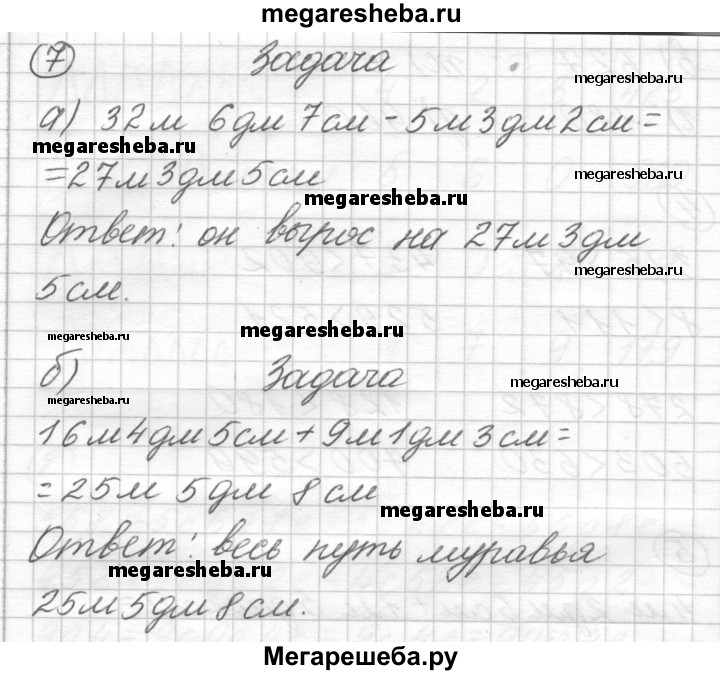 megaresheba.ru
7 Задача
megaresheba.ru
а) 32м 6дм 7см - 5м 3дм 2см =
megaresheba.ru
= 27м 3дм 5см
megaresheba.ru
megaresheba.ru
Ответ: он вырос на 27м 3дм
megaresheba.ru
5см.
megaresheba.ru
megaresheba.ru
б) Задача
megaresheba.ru
megaresheba.ru
16м 4дм 5см + 9м 1дм 3см =
= 25м 5дм 8см
megaresheba.ru
Ответ: весь путь муравья
megaresheba.ru
25м 5дм 8см.
Мегарешеба.ру